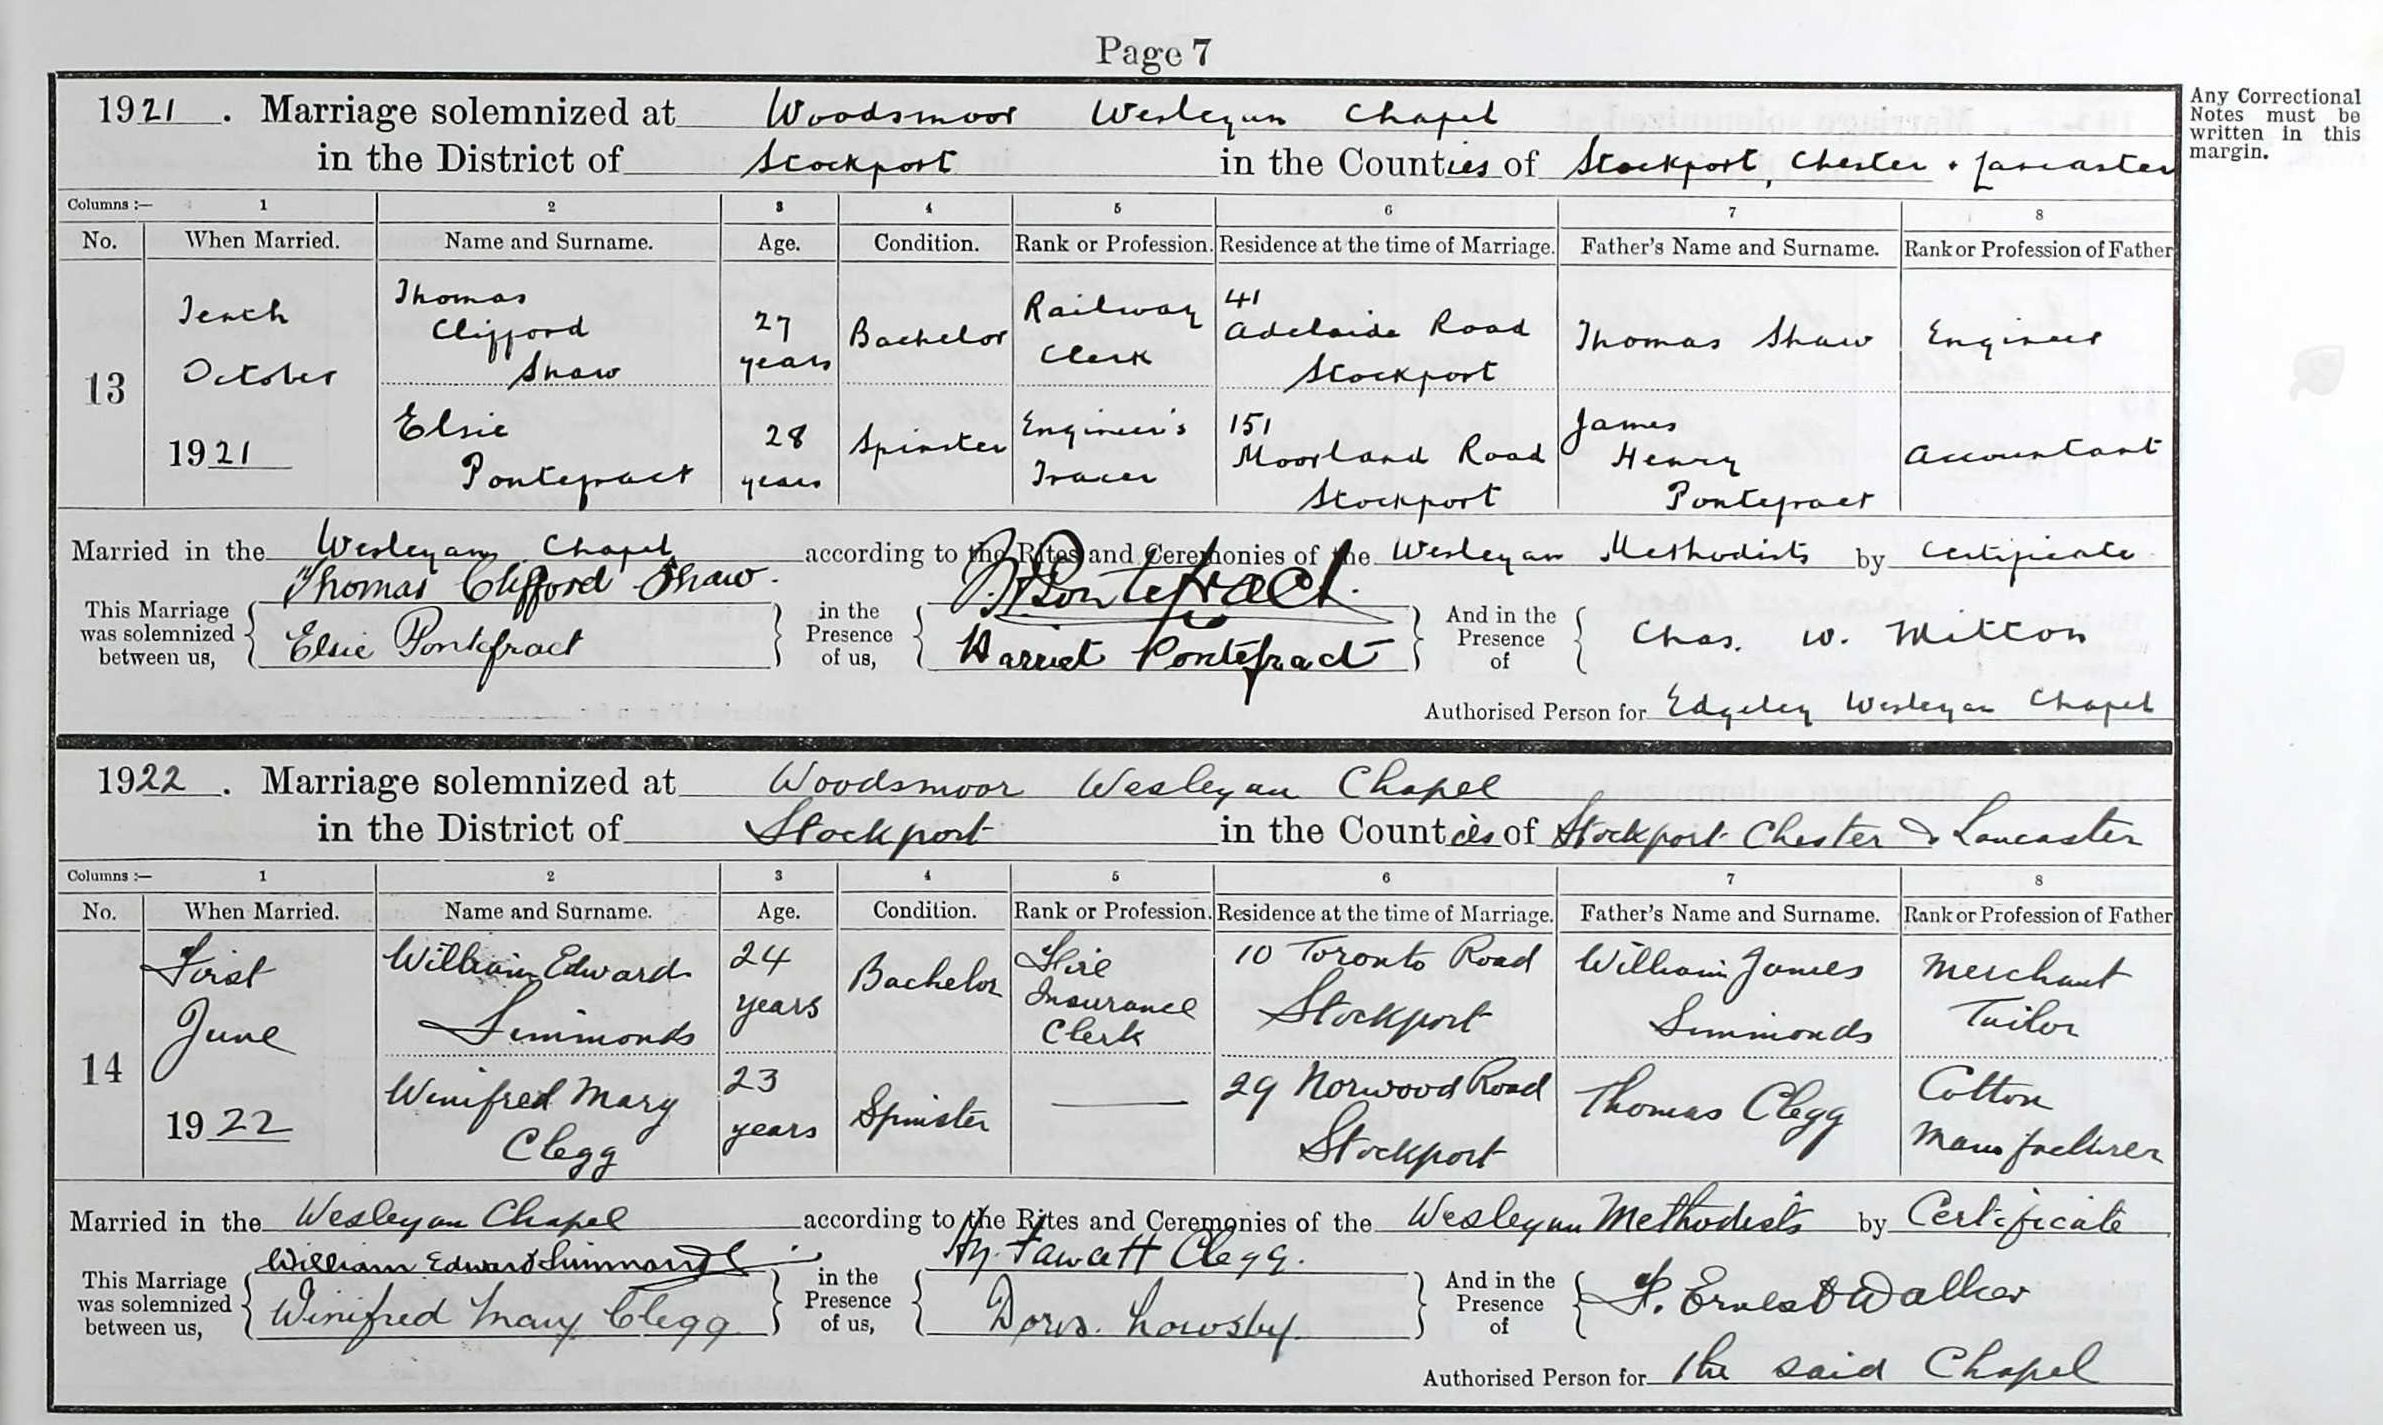 Page 7
1921. Marriage solemnized at Woodsmoor Wesleyan Chapel
in the District of Stockport in the Counties of Stockport, Chester + Lancaster
Any Correctional
Notes must be
written in this
margin.
Columns :— 1 2 3 4 5 6 7 8
No. When Married. Name and Surname. Age. Condition. Rank or Profession. Residence at the time of Marriage. Father's Name and Surname. Rank or Profession of Father
13
Tenth
October
1921
Thomas
Clifford
Shaw
27
years
Bachelor
Railway
Clerk
41
Adelaide Road
Stockport
Thomas Shaw
Engineer
Elsie
Pontefract
28
years
Spinster
Engineer's
Tracer
151
Moorland Road
Stockport
James
Henry
Pontefract
Accountant
Married in the Wesleyan Chapel according to the Rites and Ceremonies of the Wesleyan Methodists by Certificate
This Marriage
was solemnized
between us,
Thomas Clifford Shaw.
Elsie Pontefract
in the
Presence
of us,
Pontefract.
Harriet Pontefract
And in the
Presence
of
Chas. W. Mitton
Authorised Person for Edgeley Wesleyan Chapel
1922. Marriage solemnized at Woodsmoor Wesleyan Chapel
in the District of Stockport in the Counties of Stockport Chester & Lancaster
Columns :— 1 2 3 4 5 6 7 8
No. When Married. Name and Surname. Age. Condition. Rank or Profession. Residence at the time of Marriage. Father's Name and Surname. Rank or Profession of Father
14
First
June
1922
William Edward
Simmonds
24
years
Bachelor
Fire
Insurance
Clerk
10 Toronto Road
Stockport
William James
Simmonds
Merchant
Tailor
Winifred Mary
Clegg
23
years
Spinster
———
29 Norwood Road
Stockport
Thomas Clegg
Cotton
Manufacturer
Married in the Wesleyan Chapel according to the Rites and Ceremonies of the Wesleyan Methodists by Certificate
This Marriage
was solemnized
between us,
William Edward Simmonds
Winifred Mary Clegg
in the
Presence
of us,
Hy. Fawcett Clegg.
Doris. Lowsby.
And in the
Presence
of
F. Ernest Walker
Authorised Person for the said Chapel